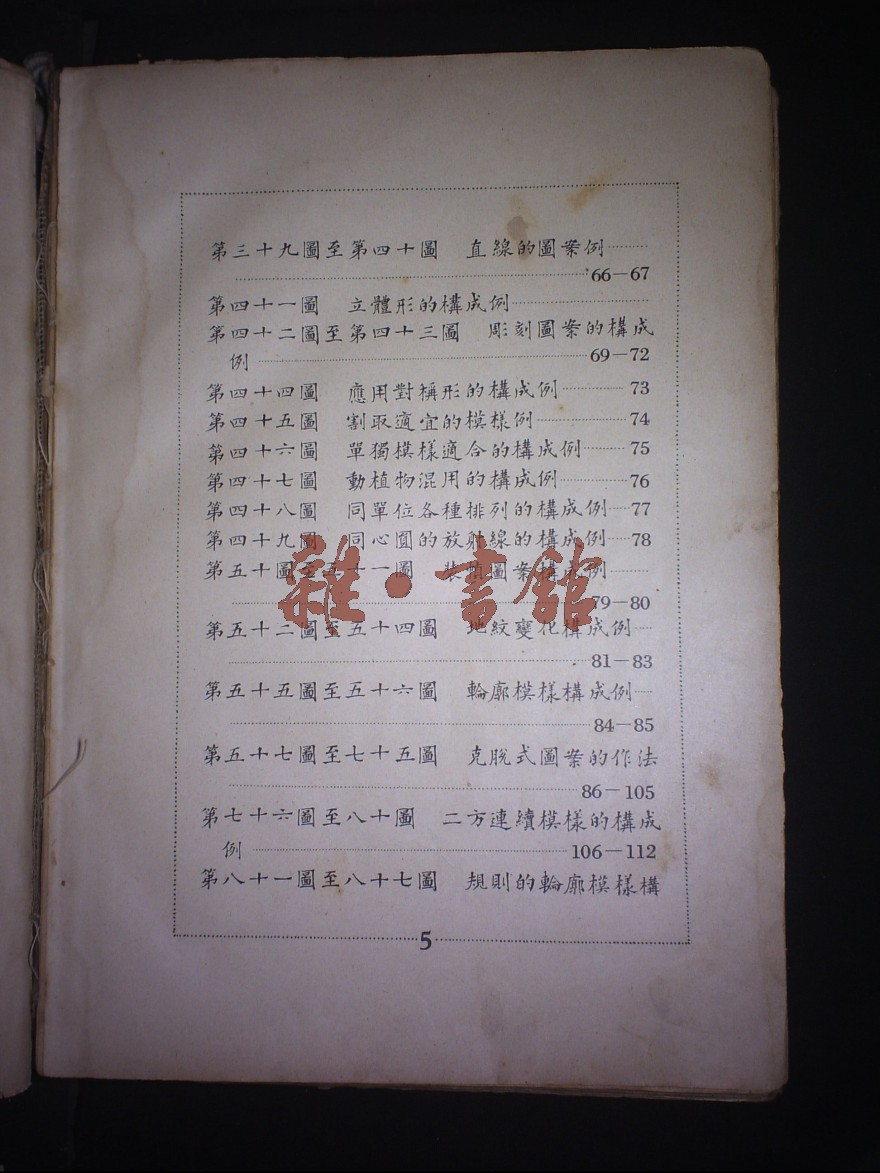 第三十九圖至第四十圖　直線的圖案例………
……………………66—67
第四十一圖　立體形的構成例……………………
第四十二圖至第四十三圖　彫刻圖案的構成
例……………………69—72
第四十四圖　應用對稱形的構成例…………73
第四十五圖　割取適宜的模樣例……………74
第四十六圖　單獨模樣適合的構成例………75
第四十七圖　動植物混用的構成例…………76
第四十八圖　同單位各種排列的構成例……77
第四十九圖　同心圓的放射線的構成例……78
第五十圖至五十一圖　裝楨圖案構成例………
……………………79—80
第五十二圖至五十四圖　地紋變化構成例……
……………………81—83
第五十五圖至五十六圖　輪廓模樣構成例……
……………………84—85
第五十七圖至七十五圖　克脫式圖案的作法
……………………86—105
第七十六圖至八十圖　二方連續模樣的構成
例……………………106—112
第八十一圖至八十七圖　規則的輪廓模樣構
5
雜·書舘